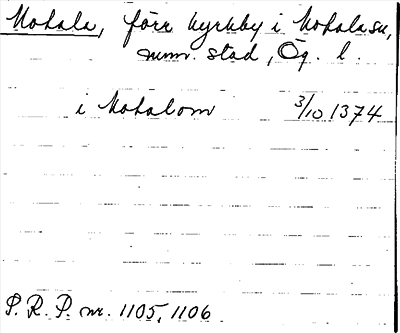 Motala, förr kyrkby i Motala sn,
numr. stad, Ög. l.
i Motalom 3/10 1374
P. R. P. nr. 1105, 1106